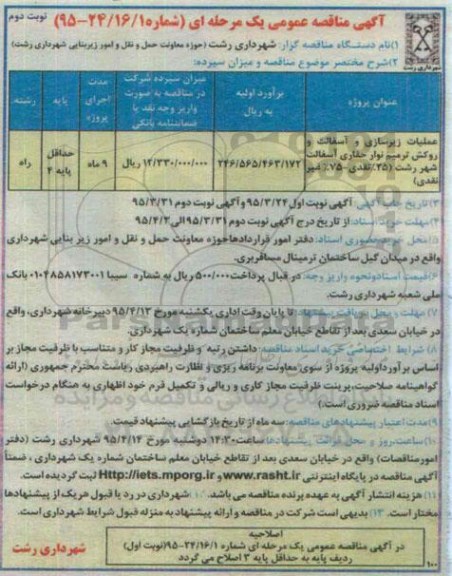 نوبت دوم
آگهی مناقصه عمومی یک مرحله ای (شماره ۹۵-۲۴/۱۶/۱)
شهرداری رشت
۱)نام دستگاه مناقصه گزار: شهرداری رشت (حوزه معاونت حمل و نقل و امور زیربنایی شهرداری رشت)
۲)شرح مختصر موضوع مناقصه و میزان سپرده:
عنوان پروژه
برآورد اولیه به ریال
میزان سپرده شرکت در مناقصه به صورت واریز وجه نقد یا ضمانتنامه بانکی
مدت اجرای پروژه
پایه
رشته
عملیات زیرسازی و آسفالت و روکش ترمیم نوار حفاری آسفالت شهر رشت (۲۵٪نقدی-۷۵٪ غیر نقدی)
۲۴۶/۵۶۵/۴۶۳/۱۷۲
۱۲/۳۳۰/۰۰۰/۰۰۰ ریال
۹ ماه
حداقل پایه ۴
راه
۳)تاریخ چاپ آگهی: آگهی نوبت اول ۹۵/۳/۲۴ و آگهی نوبت دوم ۹۵/۳/۳۱
۴)مهلت خرید اسناد: از تاریخ درج آگهی نوبت دوم ۹۵/۳/۳۱ الی ۹۵/۴/۲
۵)محل خرید حضوری اسناد: دفتر امور قراردادها حوزه معاونت حمل و نقل و امور زیر بنایی شهرداری
واقع در میدان گیل ساختمان ترمینال مسافربری.
۶)قیمت اسناد و نحوه واریز وجه: در قبال پرداخت ۵۰۰/۰۰۰ ریال به شماره سیبا ۰۱۰۴۸۵۸۱۷۳۰۰۱ بانک
ملی شعبه شهرداری رشت.
۷) مهلت و محل دریافت پیشنهاد: تا پایان وقت اداری یکشنبه مورخ ۹۵/۴/۱۳ دبیرخانه شهرداری، واقع
در خیابان سعدی بعد از تقاطع خیابان معلم ساختمان شماره یک شهرداری.
۸) شرایط اختصاصی خرید اسناد مناقصه: داشتن رتبه و ظرفیت مجاز کار و متناسب با ظرفیت مجاز بر
اساس برآورد اولیه پروژه از سوی معاونت برنامه ریزی و نظارت راهبردی ریاست محترم جمهوری (ارائه
گواهینامه صلاحیت، پرینت ظرفیت مجاز کاری و ریالی و تکمیل فرم خود اظهاری به هنگام درخواست
اسناد مناقصه ضروری است.)
۹)مدت اعتبار پیشنهادهای مناقصه: سه ماه از تاریخ بازگشایی پیشنهاد قیمت.
۱۰)ساعت، روز و محل قرائت پیشنهادها: ساعت ۱۴:۳۰ دوشنبه مورخ ۹۵/۴/۱۴ شهرداری رشت (دفتر
امور مناقصات) واقع در خیابان سعدی بعد از تقاطع خیابان معلم ساختمان شماره یک شهرداری ، ضمناً
آگهی مناقصه در پایگاه اینترنتی www.rasht.ir و Http://iets.mporg.ir ثبت گردیده است.
۱۱) هزینه انتشار آگهی به عهده برنده مناقصه می باشد. ۱۲) شهرداری در رد یا قبول هر یک از پیشنهادها
مختار است. ۱۳) بدیهی است شرکت در مناقصه و ارائه پیشنهاد به منزله قبول شرایط شهرداری است.
اصلاحیه
در آگهی مناقصه عمومی یک مرحله ای شماره ۹۵-۲۴/۱۶/۱(نوبت اول)
ردیف پایه به حداقل پایه ۳ اصلاح می گردد
شهرداری رشت